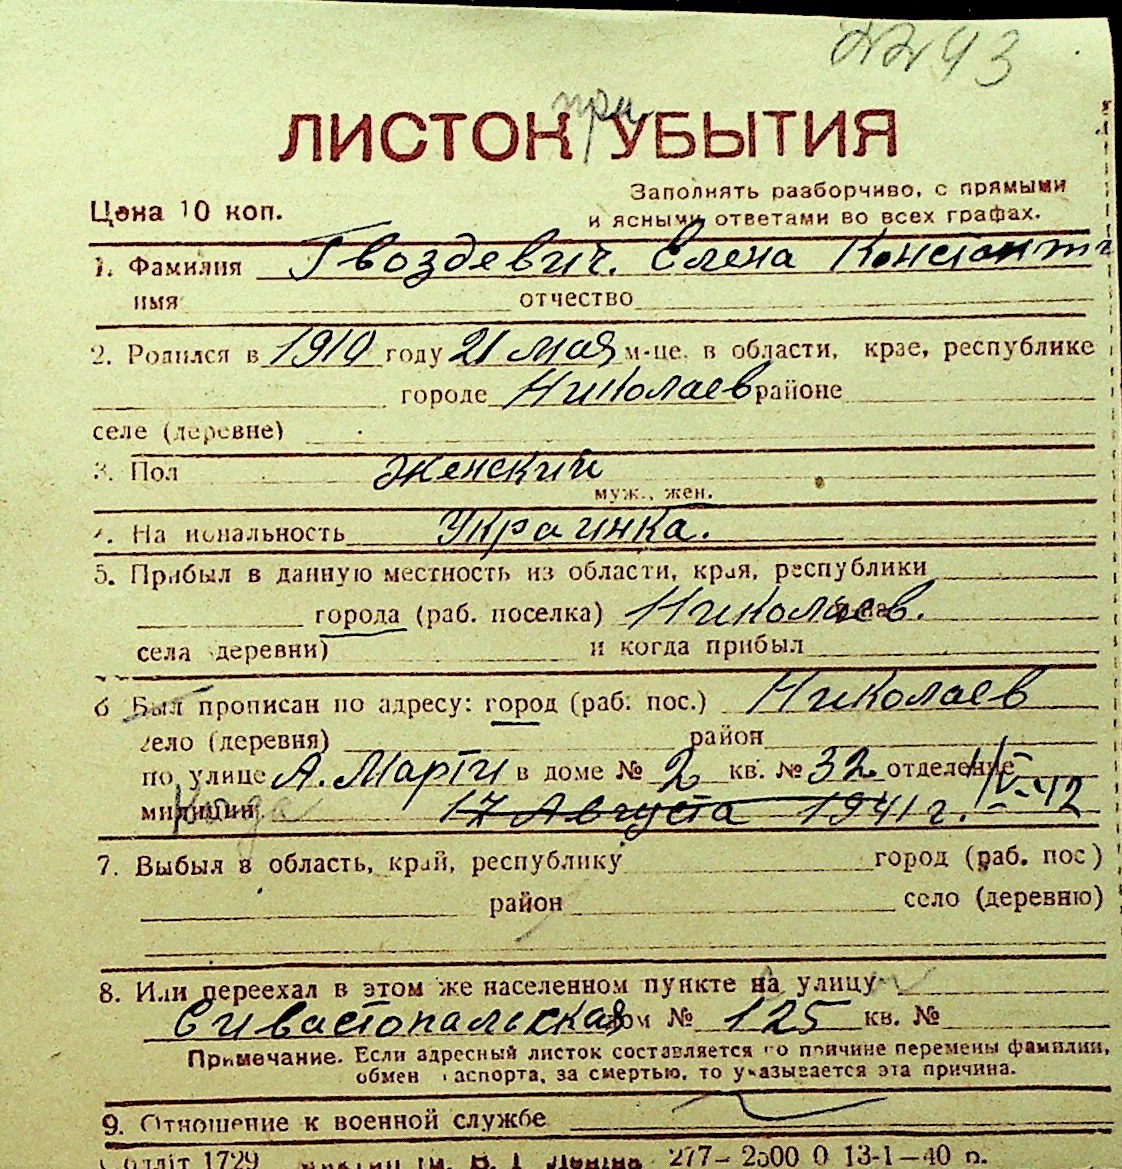 2293
при
ЛИСТОК УБЫТИЯ
Заполнять разборчиво, с прямыми
Цена 10 коп.
и ясными ответами во всех графах.
1. Фамилия Гвоздевич. Елена Константи
имя отчество
2. Родился в 1910 году 21 мая м-це, в области, крае, республике
городе Николаев районе
селе (деревне)
3. Пол женский
муж., жен.
4. Национальность Украинка.
5. Прибыл в данную местность из области, края, республики
города (раб. поселка) Николаев.
села (деревни) и когда прибыл
6 Был прописан по адресу: город (раб. пос.) Николаев
село (деревня) район
по улице А. Марти в доме № 2 кв. № 32 отделение
милиции Когда 17 Августа 1941 г. IV-42
7. Выбыл в область, край, республику город (раб. пос)
район село (деревню)
8. Или переехал в этом же населенном пункте на улицу
Сивастопальская дом № 125 кв. №
Примечание. Если адресный листок составляется по причине перемены фамилии,
обмен паспорта, за смертью, то указывается эта причина.
9. Отношение к военной службе
1729 277—2500 0 13-1—40 р.